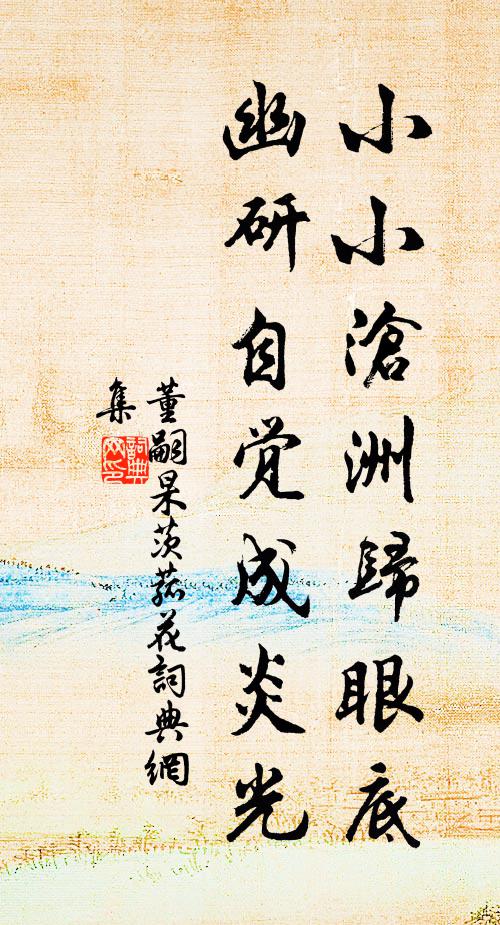 小小滄洲歸眼底
幽研自觉成炎光
董嗣杲茨菰花詞典網
集
詞典